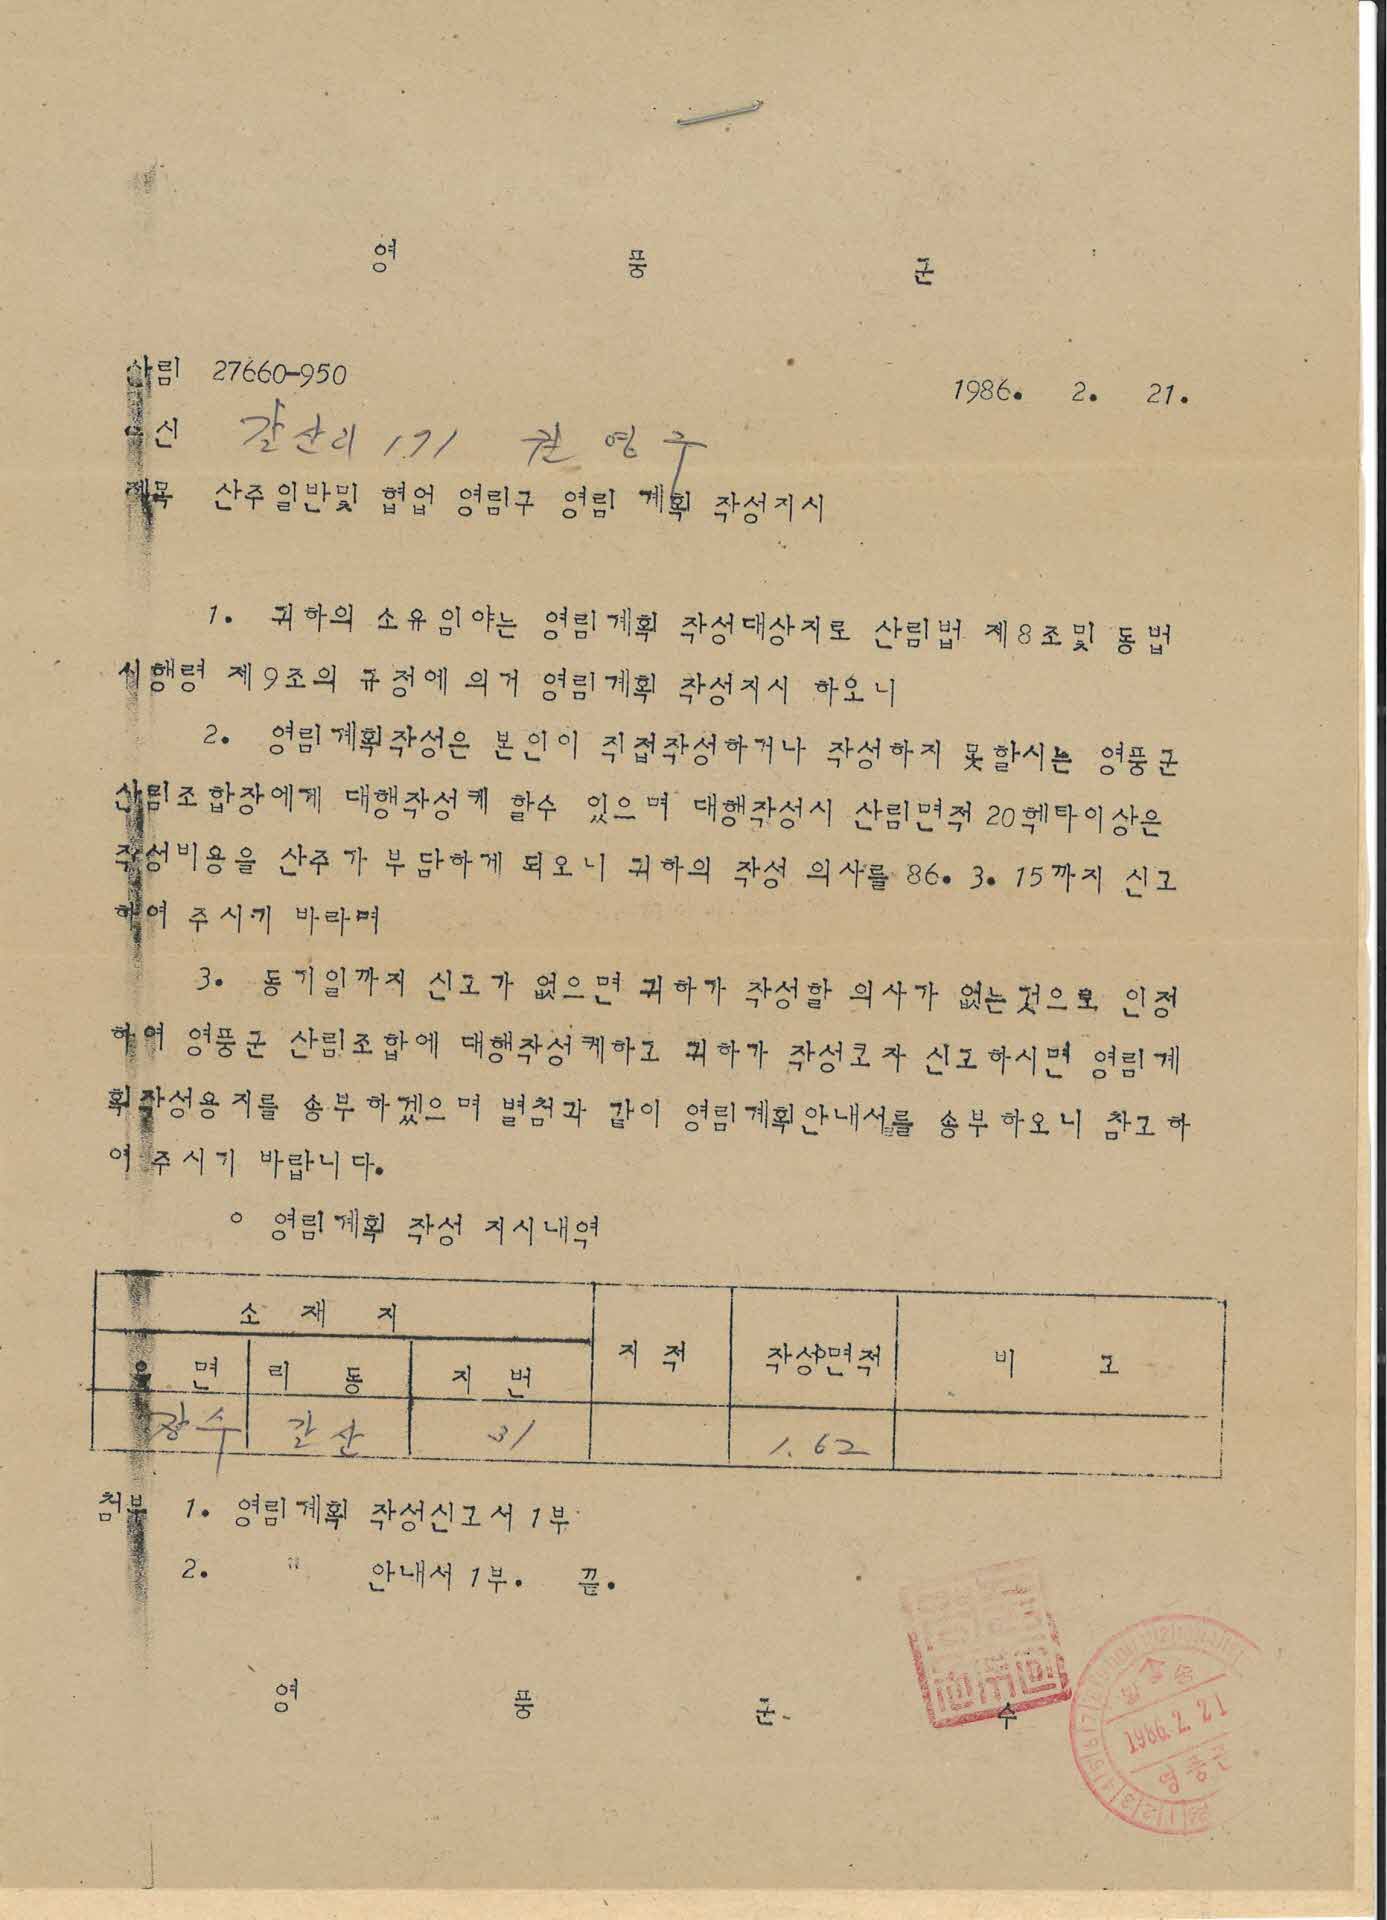 영 풍 군
산림 27660-950
1986. 2. 21.
수신 갈산리 171 권영구
제목 산주일반및 협업 영림구 영림 계획 작성지시
1. 귀하의 소유임야는 영림계획 작성대상지로 산림법 제8조및 동법
시행령 제9조의 규정에 의거 영림계획 작성지시 하오니
2. 영림계획작성은 본인이 직접작성하거나 작성하지 못할시는 영풍군
산림조합장에게 대행작성케 할수 있으며 대행작성시 산림면적 20헥타이상은
작성비용을 산주가 부담하게 되오니 귀하의 작성 의사를 86. 3. 15까지 신고
하여 주시기 바라며
3. 동기일까지 신고가 없으면 귀하가 작성할 의사가 없는것으로 인정
하여 영풍군 산림조합에 대행작성케하고 귀하가 작성코자 신고하시면 영림계
획작성용지를 송부하겠으며 별첨과 같이 영림계획안내서를 송부하오니 참고하
여 주시기 바랍니다.
○ 영림계획 작성 지시내역
소 재 지
지 적 작성면적 비 고
읍 면 리 동 지 번
장수 갈산 31 1.62
첨부 1. 영림계획 작성신고서 1부
2. 〃 안내서 1부. 끝.
영 풍 군 수
영풍군